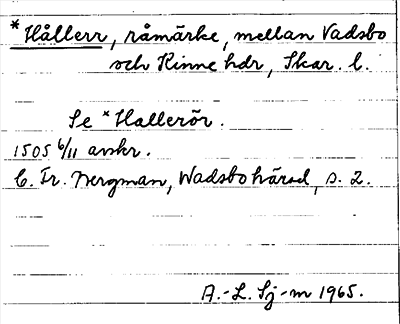 *Hållerr, råmärke, mellan Vadsbo
och Kinne hdr, Skar. l.
Se *Hallerör.
1505 6/11 avskr.
C. Fr. Nergman, Wadsbo härad, s. 2.
A.-L. Sj-m 1965.